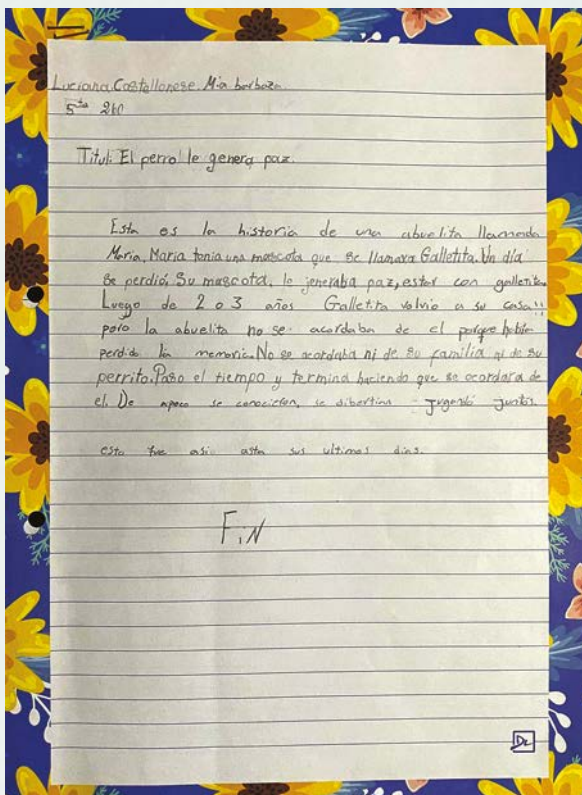 Luciana Castellonese. Mia barboza
5to 2do
Titul: El perro le genera paz.
Esta es la historia de una abuelita llamada
Maria. Maria tenia una mascota que se llamara Galletita. Un día
se perdió. Su mascota, le jeneraba paz, estar con galletita.
Luego de 2 o 3 años Galletita volvio a su casa!!
pero la abuelita no se acordaba de el porque habia
perdido la memoria. No se acordaba ni de su familia ni de su
perrito. Paso el tiempo y termina haciendo que se acordara de
el. De apoco se conocieron, se dibertian jugando juntos
esto fue asi asta sus ultimos dias.
FiN